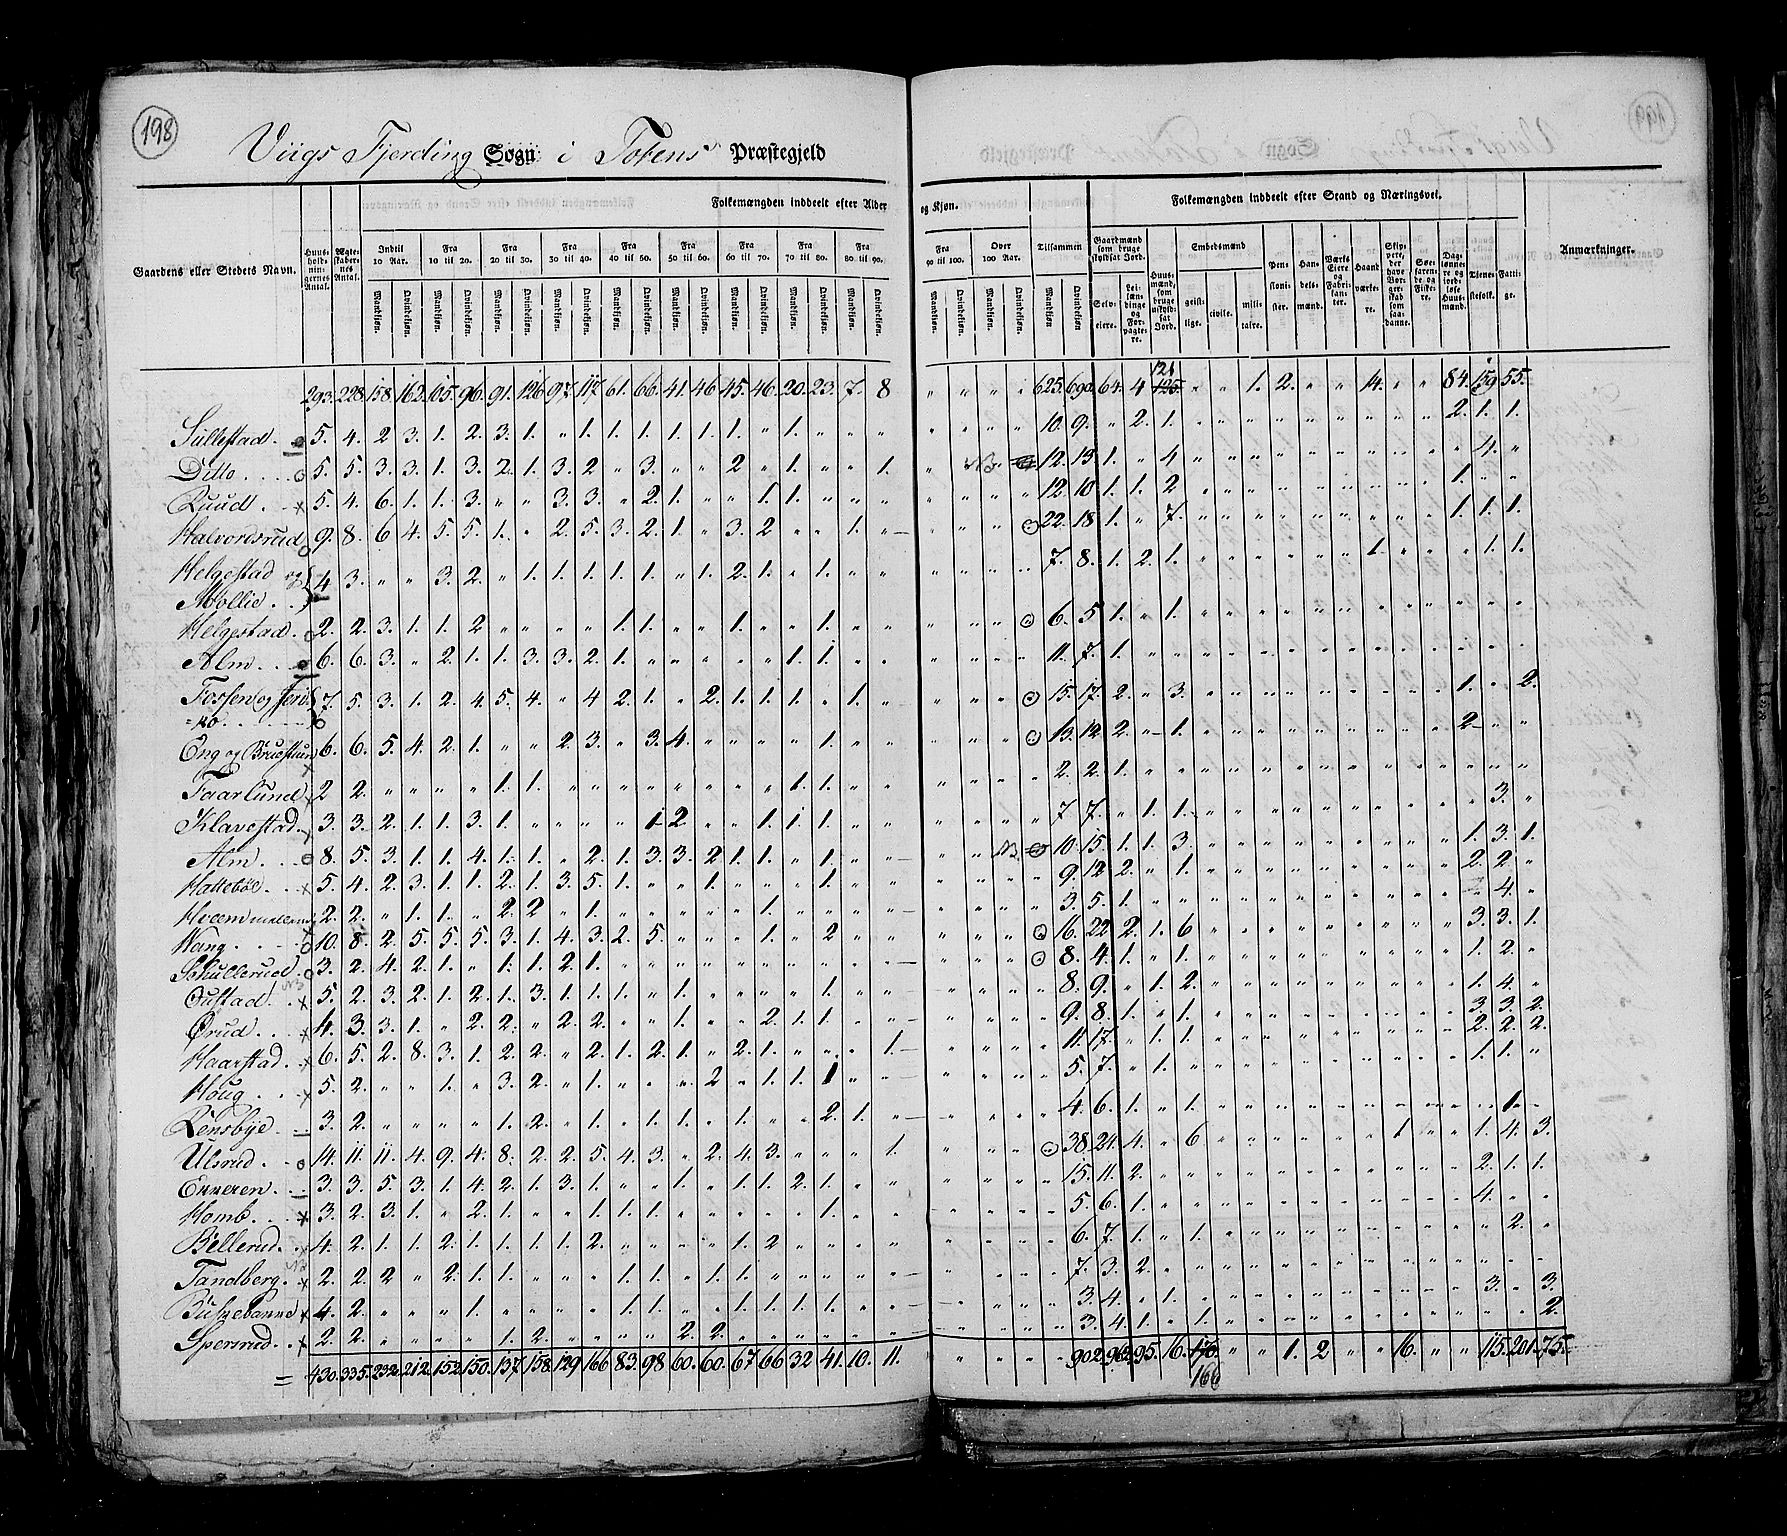 198
Viigs Fjerding Sogn i Totens Præstegjeld
Folkemængden inddeelt efter Alder og Kjøn.
Folkemængden inddeelt efter Stand og Næringsvei.
Gaardens eller Stedets Navn.
Huusholdningernes Antal.
Ægteskabernes Antal.
Indtil 10 Aar. Fra 10 til 20. Fra 20 til 30. Fra 30 til 40. Fra 40 til 50. Fra 50 til 60. Fra 60 til 70. Fra 70 til 80. Fra 80 til 90. Fra 90 til 100. Over 100 Aar. Tilsammen
Mandkjøn. Qvindekjøn.
Gaardmænd som bruge skyldsat Jord.
Selveiere. Leilændinge og Forpagtere.
Huusmænd, som bruge uskyldsat Jord.
Embedsmænd
geistlige. civile. militaire.
Pensionister. Handelsmænd. Værks Eiere og Fabrikanter. Haandværkere. Skippere, der have Borgerskab som saadanne. Søefarende og Fiskere. Daglønnere og jordløse Huusmænd. Tjenestefolk. Fattige.
Anmærkninger.
293. 228. 158. 162. 105. 96. 91. 126. 97. 117. 61. 66. 41. 46. 45. 46. 20. 23. 7. 8 " " " " 625. 690. 64. 4 125. 121 " " 1. 2. " " 14. " " 84. 159. 55.
Sullestad 5. 4. 2 3. 1. 2. 3. 1. " 1. 1. 1. 1. 1. 1. " 1. " " " " " " " 10. 9. " 2. 1. " " " " " " " " " 2. 1. 1.
Ditto 5. 5. 3. 3. 1. 3. 2. 1. 3. 2 " 3. " " 2 " 1. " " 1. " NB. 12. 13 1. " 4 " " " " " " " " " " 4. "
Ruud 5. 4. 6. 1. 1. 3. " " 3. 3. " 2. 1. " " 1. 1. " " " " " " " 12. 10 1. 1. 2 " " " " " " " " " 1. " "
Halvordsrud 9. 8. 6 4. 5. 5. 1. " 2. 5. 3. 2. 1. " 3. 2 " " 1. " " " " 22. 18 1. " 7. " " " " " " " " " 1. 1. 1.
Helgestad og
Mollie 4 3. " " 3. 2. " 1. 1. 1. 1. 1. " 1. 2. 1. " 1. " " " " " " 7. 8. 1. 2. 1. " " " " " " 1. " " " 1. 1.
Helgestad 2. 2. 3. 1. 1. 2 " " " " 1. 1. " " 1. " " 1. " " " " " 6. 5 1. " 1. " " " " " " " " " " " "
Alm 6. 6. 3. " 2. 1. 1. 3. 3. 2. 1. " " " " " 1. 1. " " " " " " 11. 7. 1. " " " " " " " " " " " " " "
Fossen og
7. 5. 3. 1. 2. 4. 5. 4. " 4 2. 1. " 2. 1. 1. 1. " 1. " " " " 15. 17. 2. " 3. " " " " " " " " " 1. " 2.
Eng og 6. 6. 5. 4. 2. 1. " " 2. 3. " 3. 4. " " " " 1. " " " " " 13. 12 2. " 1. " " " " " " " " " 2 " "
Faarlund 2 2. " " " " 1. 1. " " " " " " " " 1. 1. " " " " " " 2. 2. 1. " " " " " " " " " " " " " "
Klavestad 3. 3. 2. 1. 1. 3. 1. " " " " 1 2. " " 1. 1. 1. " " " " " " 7 7. " 1. 1. " " " " " " " " " " 3. "
Alm 8. 5. 3. 1. 1. 4. 1. 1. " 2. 1. 3. 3. 2 1. 1. " 1. " " " " NB. 10. 15. 1. 1. 3. " " " " " " " " " 1. 3. 1.
Hattebøe 5. 4. 2. 3. 1. 1. 2. 1. 3. 5. 1. " " 1. " " " 1. " " " " " " 9. 12 2. " 1. " " " " " " " " " 2. 2. "
2. 2. " 1. 1. " 2. 2 " 1. " " " " " 1. " " " " " " " " 3. 5. 1. " " " " " " " " " " " " 4. "
Wang 10. 8. 2. 5. 5. 5. 3. 1. 4. 3. 2. 5. " " " 1. " 2 " " " " " 16. 22. 2. 1. 6 " " " " " " " " " 3. 3. 1.
Schullerud 3. 2. 4. 2. 1. " 1. 1. 2. 1. " " " " " " " " " " " " " 8. 4. 1. " 1. " " " " " " " " " 1. 2. "
Oustad NB 5. 2. 3. 2. 1. 2. 1. 3. 1. 1. 1. " 1. " " " " 1. " " " " " " 8. 9. " 1. 2. " " " " " " " " " 1. 4. "
Ørud 4. 3. 3. 1. " 2. 2. " 2. 2. " " 1. " " 2. 1. 1. " " " " " " 9. 8. 1. " 1. " " " " " " " " " 3. 3. 2.
Haarstad 6. 5. 2. 8. 3. 1. 2. 2. " 2. 1. 2. 1. " 2. 1. " " " 1. " " " " 11. 17. " 1. 1. " " " " " " " " " 2. 2. 2.
Houg 5. 2. " " 1. " 3. 2. " 1. " " " 2 " 1. 1. 1 " " " " " " 5. 7. " 1. " " " " " " " " " " 1. 1. "
Rensbye 3. 2. " " " " 1. 2. " 1. " 1. 1. " 1. " " 2. 1. " " " " " 4. 6. 1. " 1. " " " " " " " " " " 1. "
Ulsrud 14. 11. 11. 4. 9. 4. 8. 2. 2. 5. 4. 3. " 2. 4. 3. " " " 1. " " " 38. 24. 4. " 6 " " " " " " 1 " " 1. 4. 3.
Enneren 3. 3. 5. 3. 1. 4. 2. 1. 3. 1. " " 1. " 1. 1. 2. 1. " " " " " " 15. 11. 2. " " " " " " " " " " " 2. 1. 1.
Homb 3. 2. 3. 1. " 2. 1. " " 1. 1. 1. " " " " " 1. " " " " " " 5. 6. 1. " " " " " " " " " " " 4. " "
Bellerud 4. 2. 1. 1. 2. 1. 1. 1. 1. 2. " " " " 1. 2 " " " " " " " " 6. 7. 1. " 1. " " " " " " " " " " 2. "
Tandberg NB 2. 2. 2 " 2. 1. 1. " " " 1. 1. " 1. 1. " " " " " " " " " 7. 3. 2. " " " " " " " " " " " " " "
4. 2. " " " 1. " " " " 1. 1. " " 1. 1. 1. 1. " " " " " " 3. 4. " 1. " " " " " " " " " " 3. " 3.
Spersrud 2. 2. " " " " 1. 2. " " " " 2. 2. " " " " " " " " " " 3. 4. 1. " 1. " " " " " " " " " " " 2.
= 430. 335. 232. 212. 152. 150. 137. 158. 129 166 83. 98 60. 60. 67. 66 32 41. 10. 11. " " " " 902. 962. 95. 16. 170. 166 " " 1. 2 " " 16. " " 115. 201. 75.